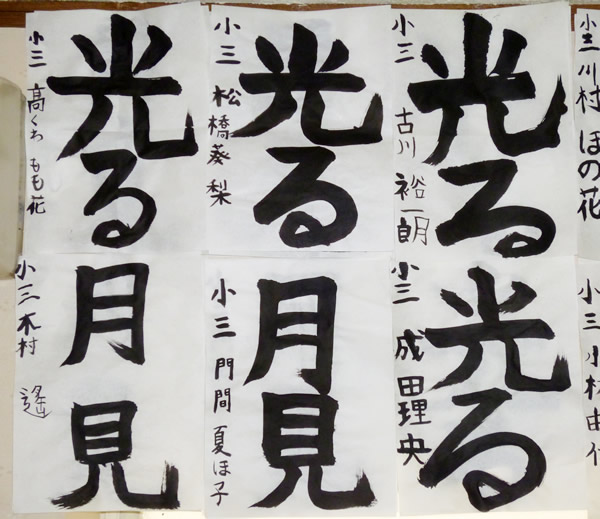 光る
小三 高くわ もも花
光る
小三 松橋葵梨
光る
小三 古川裕一朗
小三 川村 ほの花
月見
小三 木村 遥
月見
小三 門間 夏ほ子
光る
小三 成田理央
小三 小林由